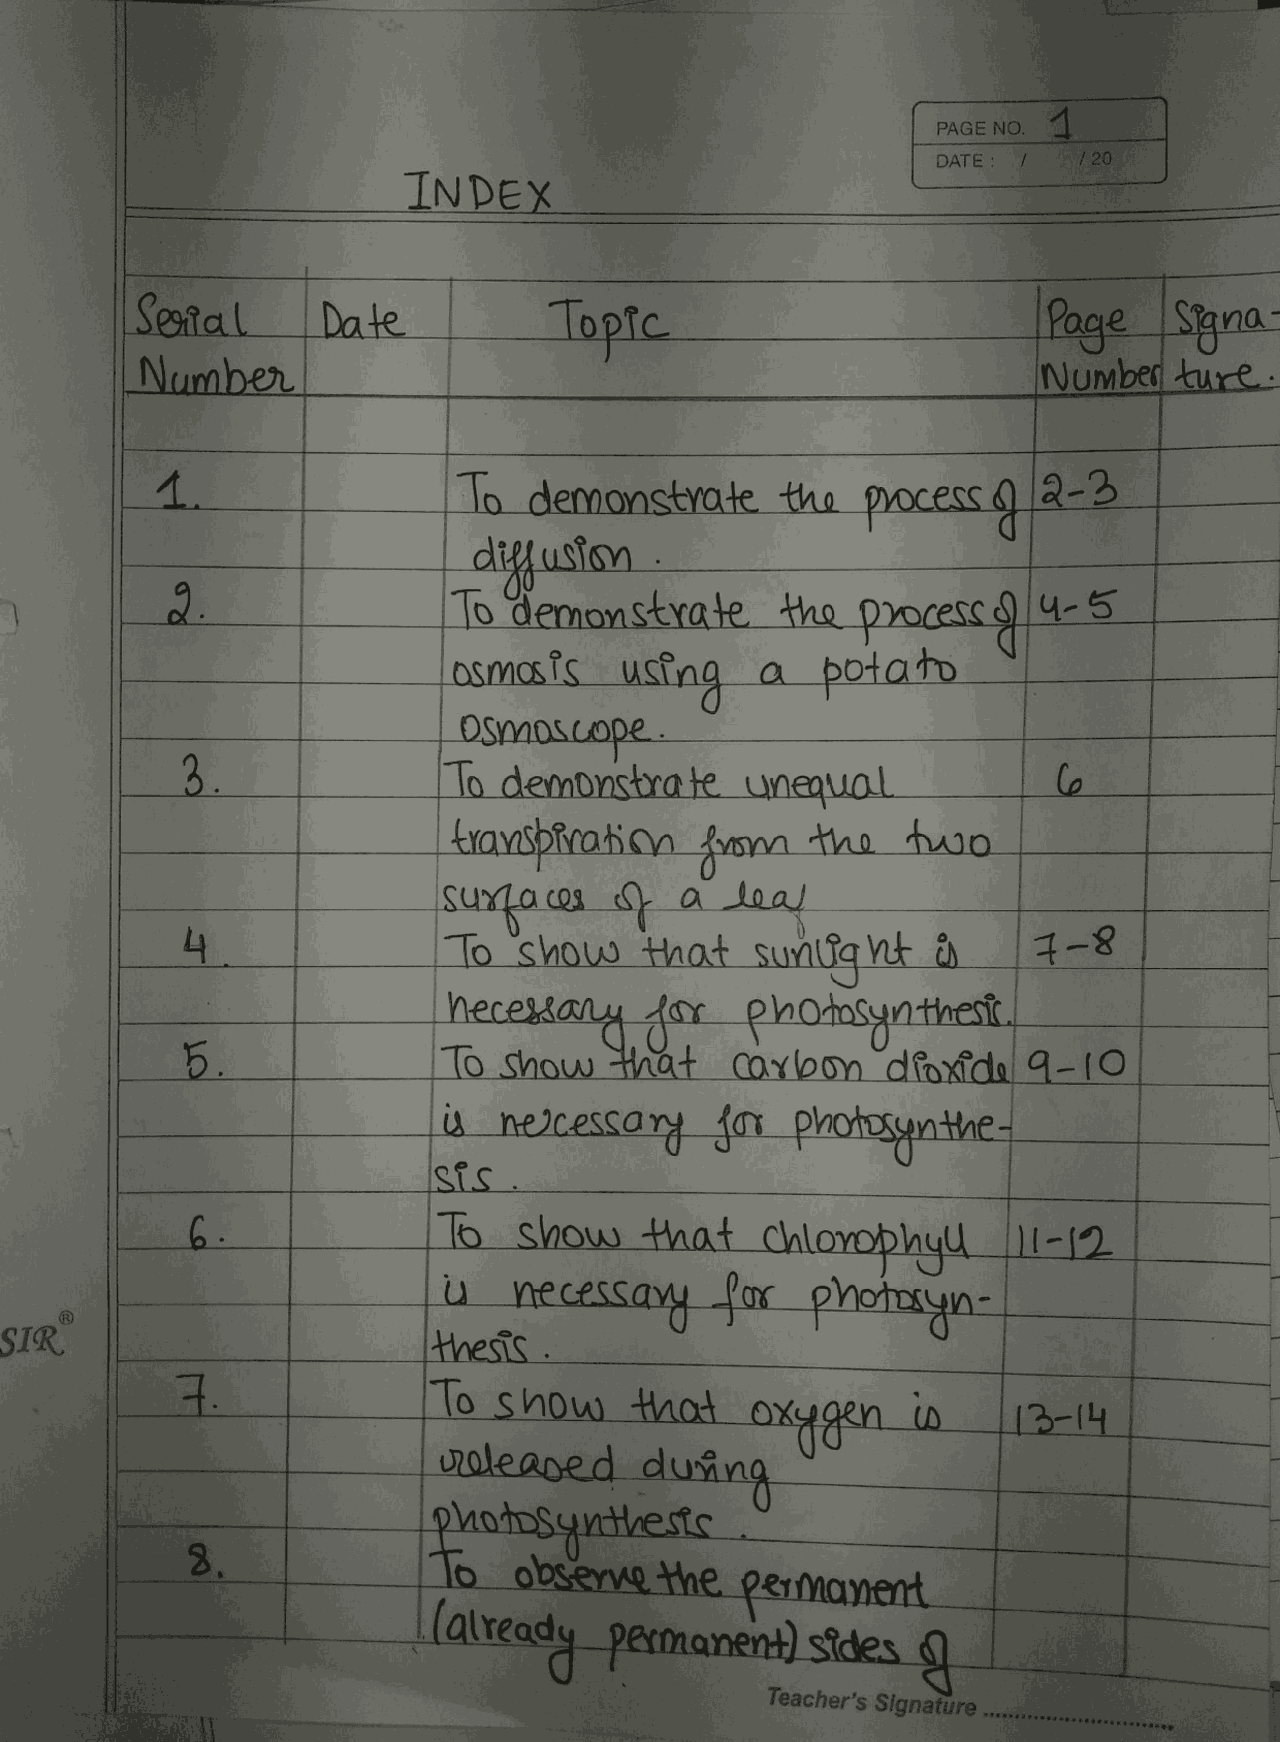 PAGE NO. 1
DATE : / / 20
INDEX
Serial Date Topic Page Signa-
Number Number ture.
1. To demonstrate the process of 2-3
diffusion.
2. To demonstrate the process of 4-5
osmosis using a potato
osmoscope.
3. To demonstrate unequal 6
transpiration from the two
surfaces of a leaf
4. To show that sunlight is 7-8
necessary for photosynthesis.
5. To show that carbon dioxide 9-10
is necessary for photosynthe-
sis.
6. To show that chlorophyll 11-12
is necessary for photosyn-
thesis.
7. To show that oxygen is 13-14
released during
photosynthesis.
8. To observe the permanent
(already permanent) sides of
SIR®
Teacher's Signature ........................